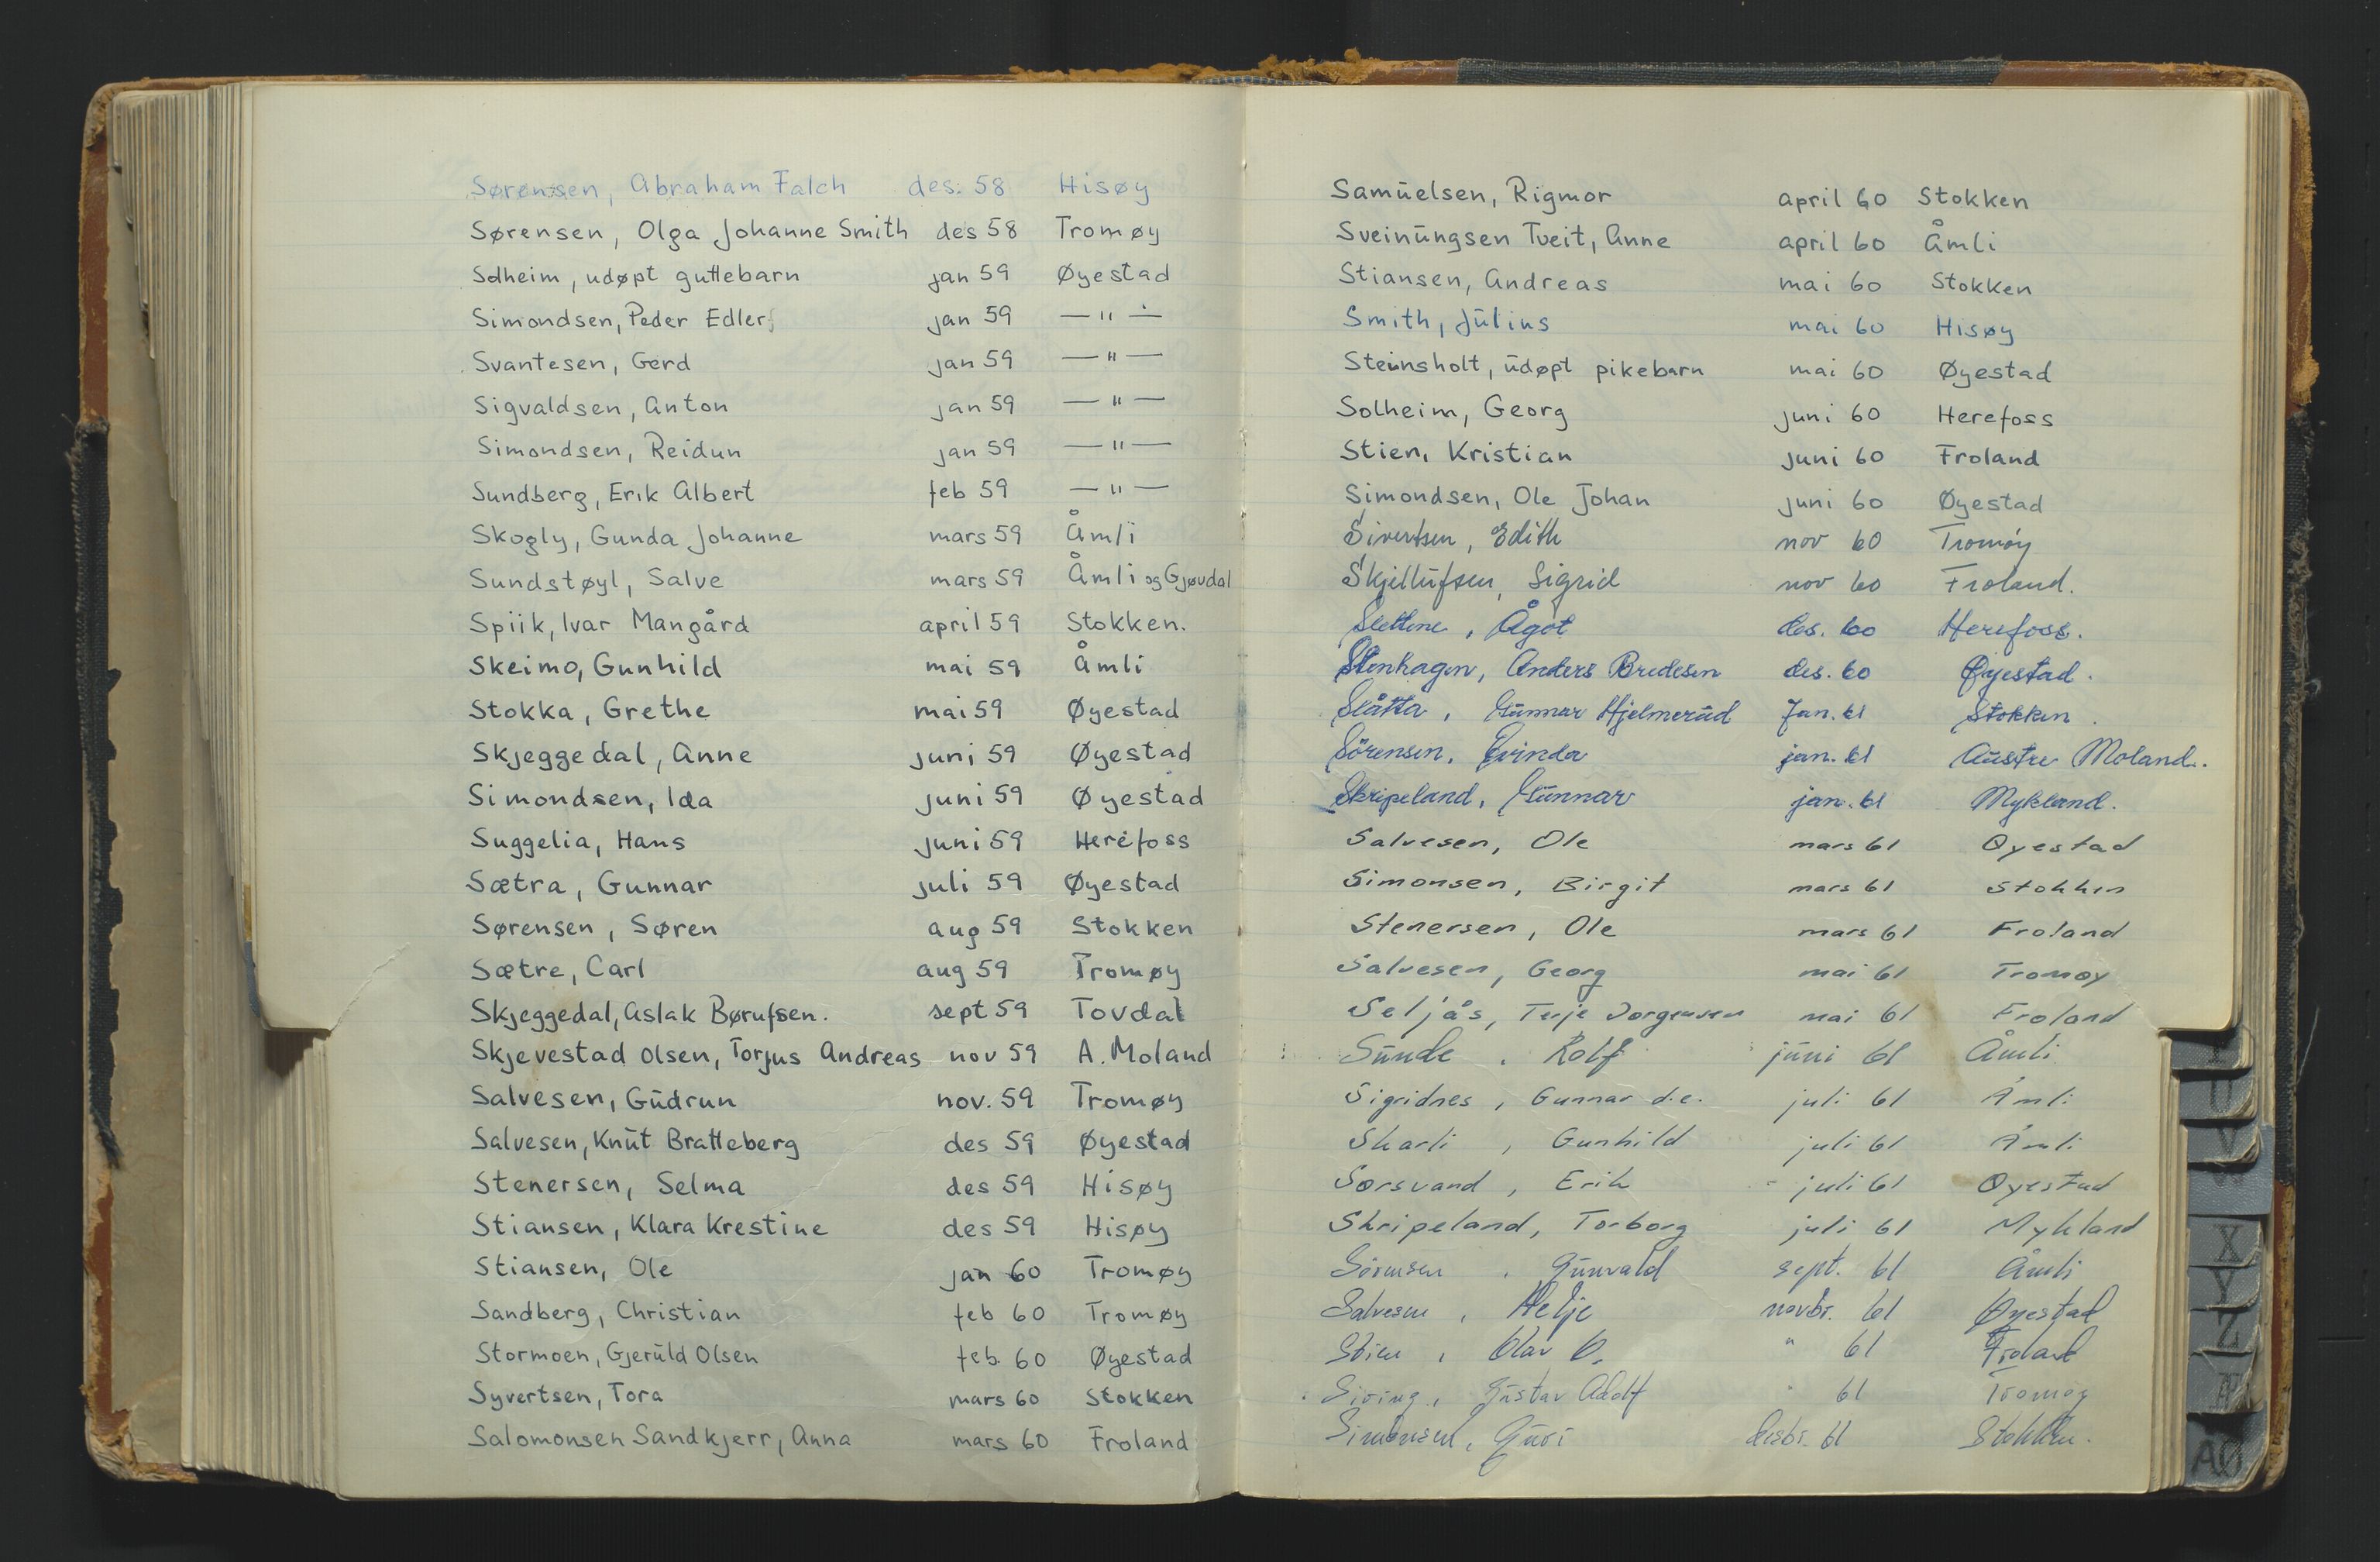 Sørensen, Abraham Falch des. 58 Hisøy
Sørensen, Olga Johanne Smith des 58 Tromøy
Solheim, udøpt guttebarn jan 59 Øyestad
Simondsen, Peder Edler jan 59 — " —
Svantesen, Gerd jan 59 — " —
Sigvaldsen, Anton jan 59 — " —
Simondsen, Reidun jan 59 — " —
Sundberg, Erik Albert feb 59 — " —
Skogly, Gunda Johanne mars 59 Åmli
Sundstøyl, Salve mars 59 Åmli og Gjøvdal
Spiik, Ivar Mangård april 59 Stokken.
Skeimo, Gunhild mai 59 Åmli
Stokka, Grethe mai 59 Øyestad
Skjeggedal, Anne juni 59 Øyestad
Simondsen, Ida juni 59 Øyestad
Suggelia, Hans juni 59 Herefoss
Sætra, Gunnar juli 59 Øyestad
Sørensen, Søren aug 59 Stokken
Sætre, Carl aug 59 Tromøy
Skjeggedal, Aslak Børufsen. sept 59 Tovdal
Skjevestad Olsen, Torjus Andreas nov 59 A. Moland
Salvesen, Gudrun nov. 59 Tromøy
Salvesen, Knut Bratteberg des 59 Øyestad
Stenersen, Selma des 59 Hisøy
Stiansen, Klara Krestine des 59 Hisøy
Stiansen, Ole jan 60 Tromøy
Sandberg, Christian feb 60 Tromøy
Stormoen, Gjeruld Olsen feb. 60 Øyestad
Syvertsen, Tora mars 60 Stokken
Salomonsen Sandkjerr, Anna mars 60 Froland
Samuelsen, Rigmor april 60 Stokken
Sveinungsen Tveit, Anne april 60 Åmli
Stiansen, Andreas mai 60 Stokken
Smith, Julius mai 60 Hisøy
Steinsholt, udøpt pikebarn mai 60 Øyestad
Solheim, Georg juni 60 Herefoss
Stien, Kristian juni 60 Froland
Simondsen, Ole Johan juni 60 Øyestad
Sivertsen, Edith nov 60 Tromøy
Skjellufsen, Sigrid nov 60 Froland.
Slettene, Ågot des. 60 Herefoss.
Stenhagen, Anders Bredesen des. 60 Øyestad.
Slåtta, Gunnar Hjelmerud Jan. 61 Stokken.
Sörensen, Evinda jan. 61 Austre Moland.
Skripeland, Gunnar jan. 61 Mykland.
Salvesen, Ole mars 61 Oyestad
Simonsen, Birgit mars 61 Stokken
Stenersen, Ole mars 61 Froland
Salvesen, Georg mai 61 Tromoy
Seljås, Terje Jorgensen mai 61 Froland
Sunde, Rolf juni 61 Åmli
Sigridnes, Gunnar d.e. juli 61 Åmli
Skarli, Gunhild juli 61 Åmli
Sorsvand, Erik juli 61 Oyestad
Skripeland, Torborg juli 61 Mykland
Sörensen, Gunvald sept. 61 Åmli
Salvesen, Helje novbr. 61 Øyestad
Stien, Olav O. " 61 Froland
Siring, Gustav Adolf " 61 Tromøy
Simonsen, Guri desbr. 61 Stokken.
U
V
X
Y
Z
Æ
ÅØ